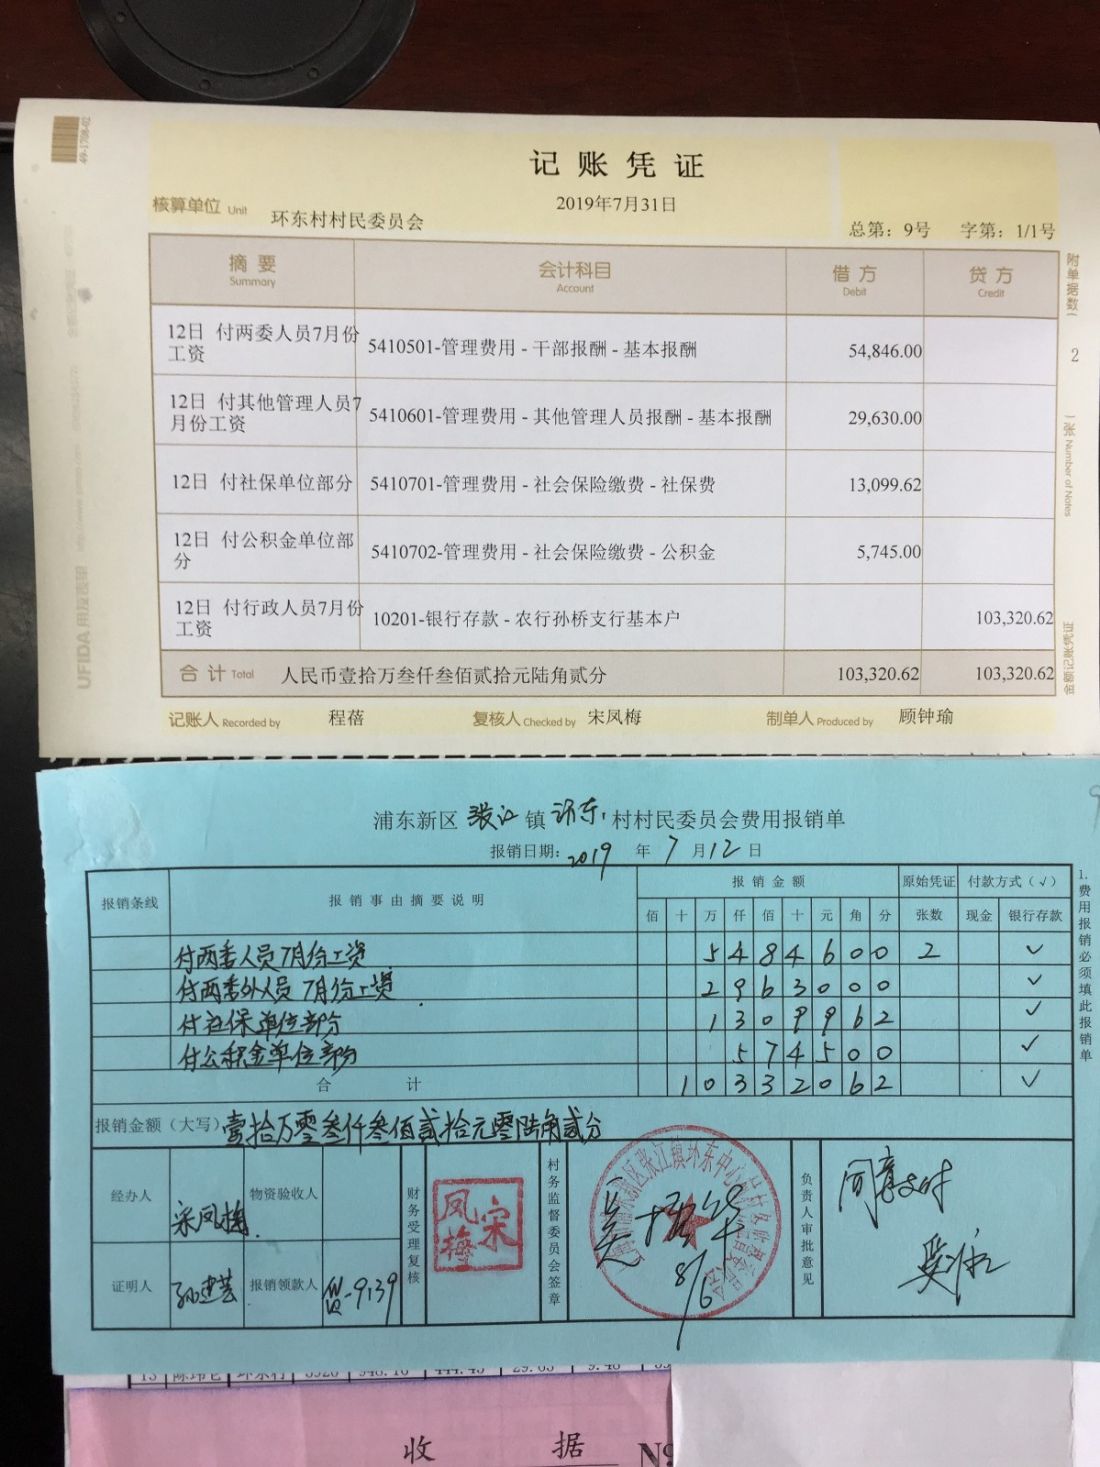 记账凭证
2019年7月31日
核算单位 Unit 环东村村民委员会
总第：9号 字第：1/1号
摘要 会计科目 借方 贷方
Summary Account Debit Credit
12日 付两委人员7月份工资 5410501-管理费用 - 干部报酬 - 基本报酬 54,846.00
12日 付其他管理人员7月份工资 5410601-管理费用 - 其他管理人员报酬 - 基本报酬 29,630.00
12日 付社保单位部分 5410701-管理费用 - 社会保险缴费 - 社保费 13,099.62
12日 付公积金单位部分 5410702-管理费用 - 社会保险缴费 - 公积金 5,745.00
12日 付行政人员7月份工资 10201-银行存款 - 农行孙桥支行基本户 103,320.62
合计 Total 人民币壹拾万叁仟叁佰贰拾元陆角贰分 103,320.62 103,320.62
记账人 Recorded by 程蓓 复核人 Checked by 宋凤梅 制单人 Produced by 顾钟瑜
附单据数( 2 )张 Number of Notes
金额记账凭证
UFIDA 用友表单
浦东新区 张江 镇 环东 村村民委员会费用报销单
报销日期：2019 年 7 月 12 日
报销条线 报销事由摘要说明 报销金额 原始凭证 付款方式（√）
佰 十 万 仟 佰 十 元 角 分 张数 现金 银行存款
付两委人员7月份工资 5 4 8 4 6 0 0 2 ✓
付两委外人员7月份工资 2 9 6 3 0 0 0 ✓
付社保单位部分 1 3 0 9 9 6 2 ✓
付公积金单位部分 5 7 4 5 0 0 ✓
合计 1 0 3 3 2 0 6 2 ✓
报销金额（大写）壹拾万零叁仟叁佰贰拾元零陆角贰分
经办人 宋凤梅 物资验收人
证明人 孙建芸 报销领款人 -9139
财务受理复核
宋凤梅
村务监督委员会签章
8/6
负责人审批意见
同意支付
1.费用报销必须填此报销单
收据 №